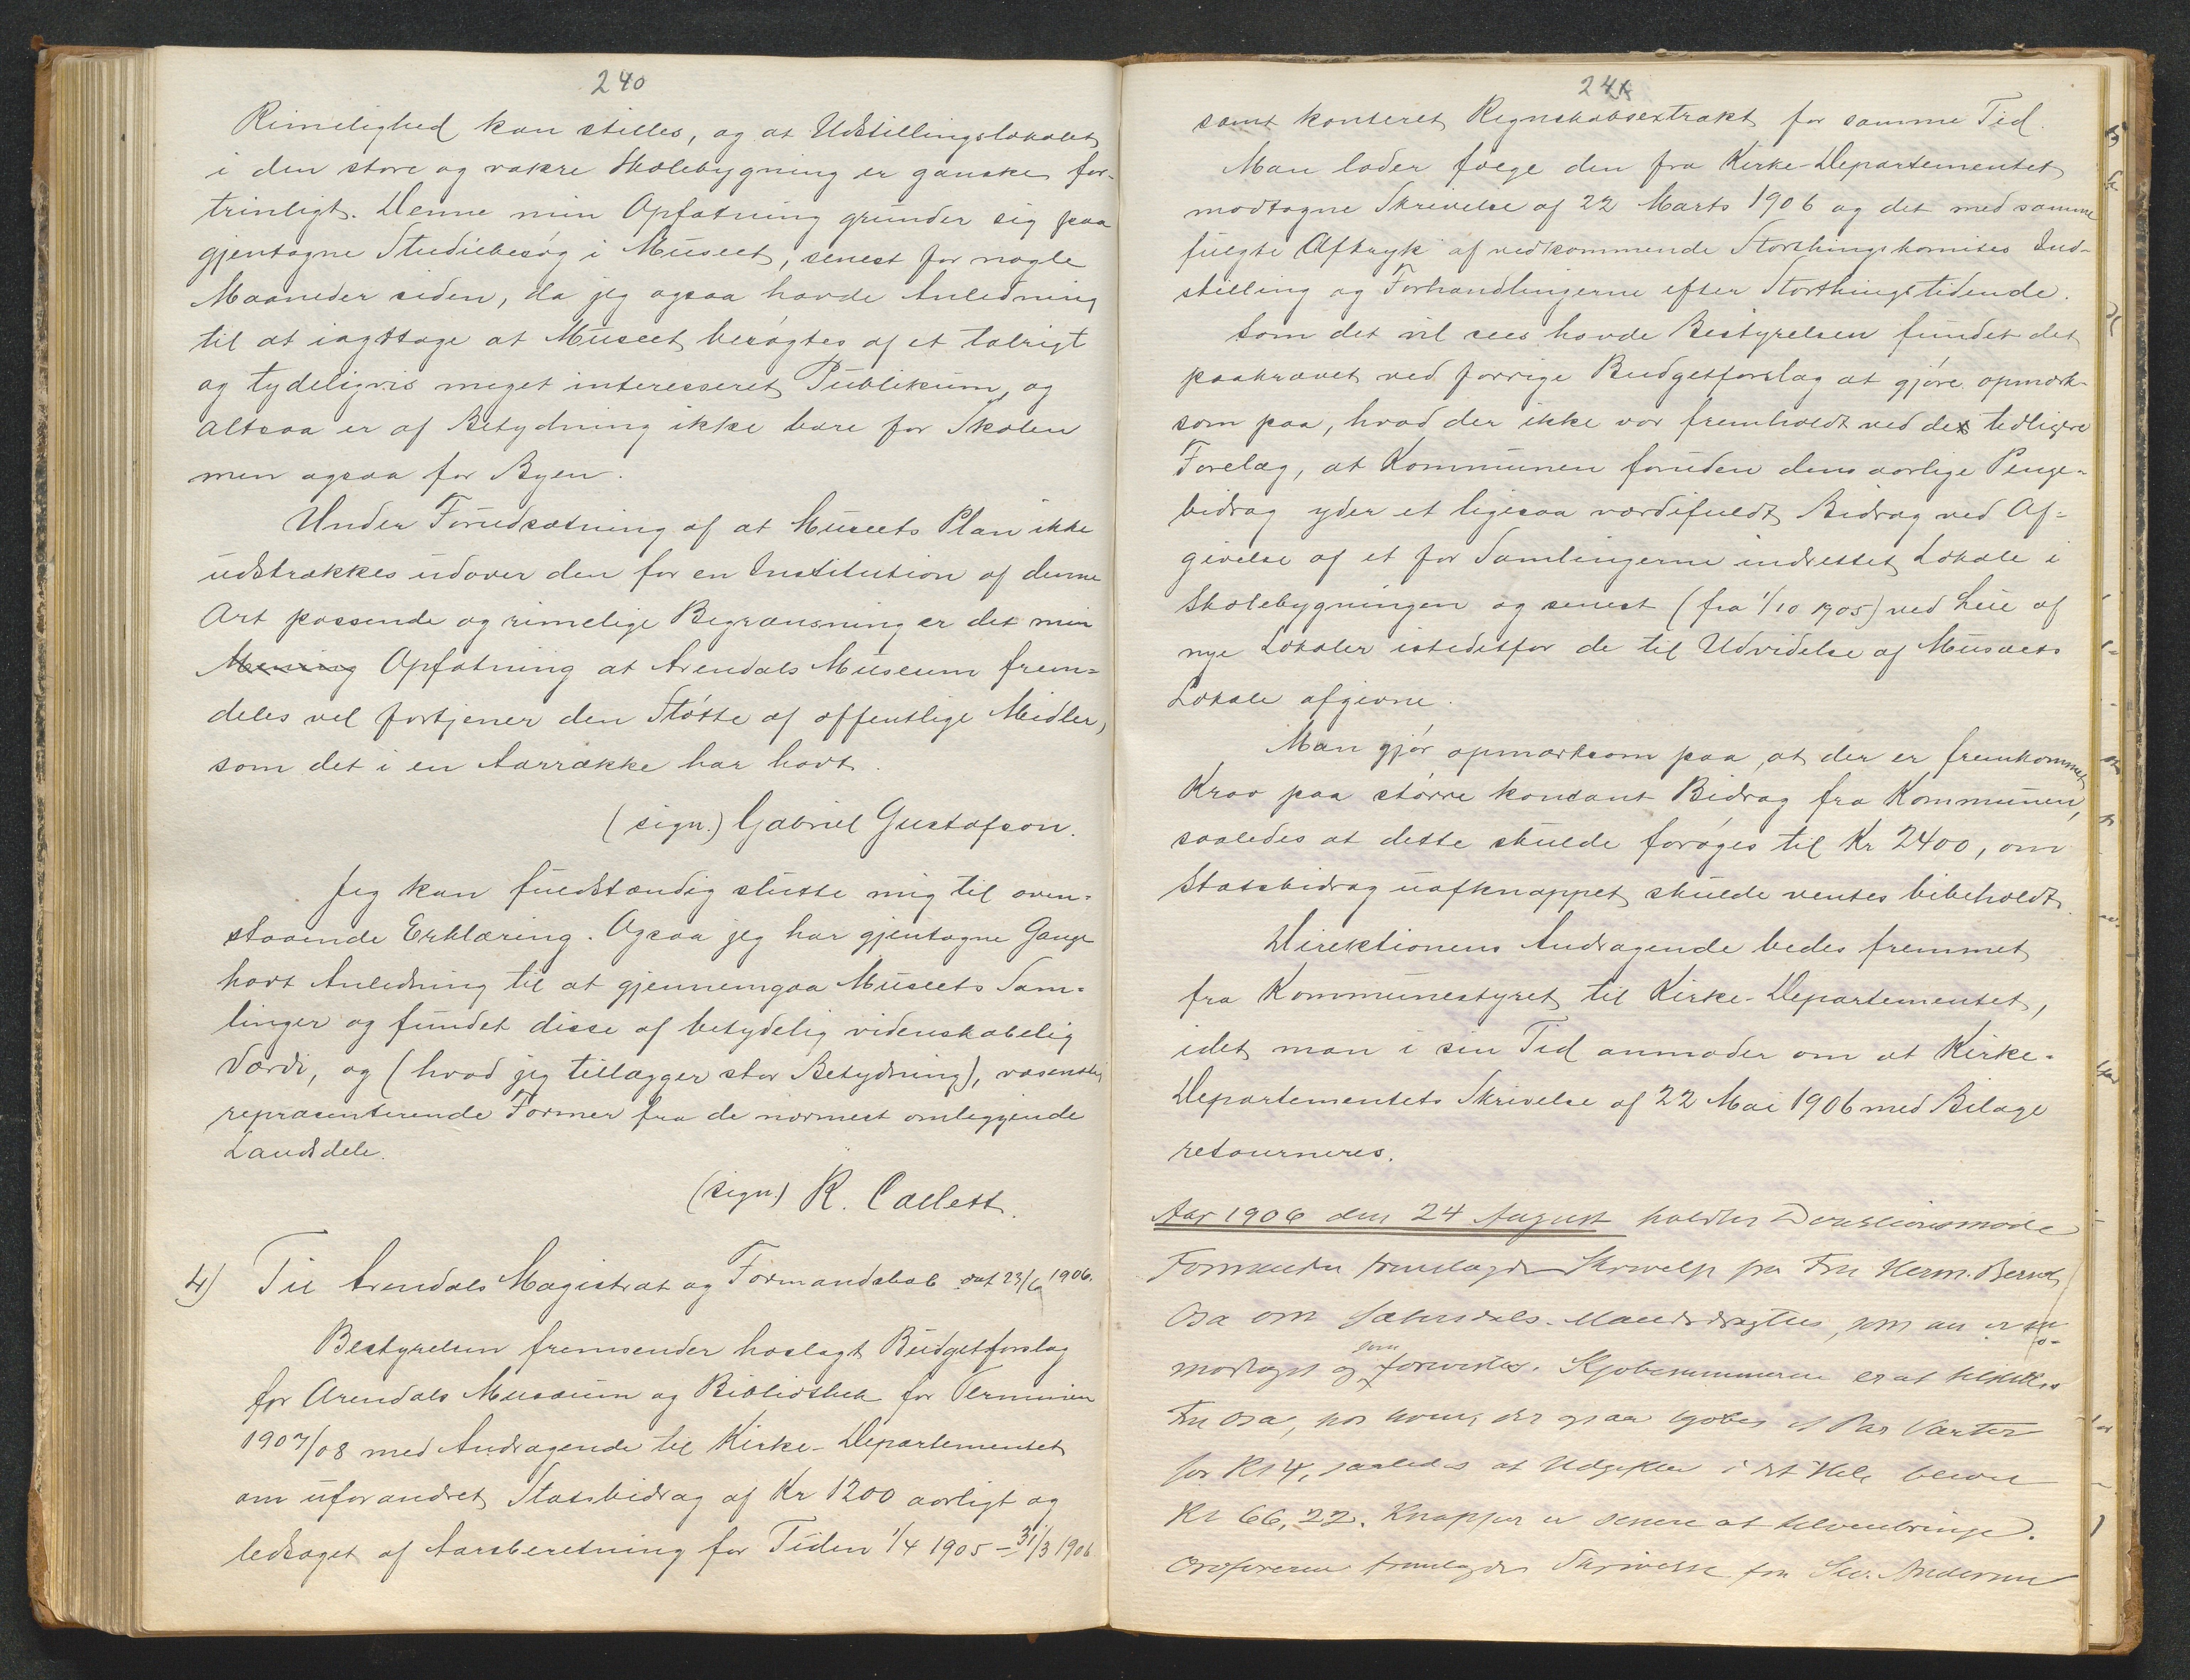 240
Rimelighed kan stilles, og at Udstillingslokalet
i den store og vakre Skolebygning er ganske for-
trinligt. Denne min Opfatning grunder sig paa
gjentagne Studiebesøg i Museet, senest for nogle
Maaneder siden, da jeg ogsaa havde Anledning
til at iagttage at Museet besøgtes af et talrigt
og tydeligvis meget interesseret Publikum, og
altsaa er af Betydning ikke bare for Skolen
men ogsaa for Byen.
Under Forudsætning af at Museets Plan ikke
udstrækkes udover den for en Institution af denne
Art passende og rimelige Begrænsning er det min
Mening Opfatning at Arendals Museum frem=
deles vel fortjener den Støtte af offentlige Midler,
som det i en Aarrække har havt.
(sign.) Gabriel Gustafson.
Jeg kan fuldstændig slutte mig til oven=
staaende Erklæring. Ogsaa jeg har gjentagne Gange
havt Anledning til at gjennemgaa Museets Sam=
linger og fundet disse af betydelig videnskabelig
Værdi, og (hvad jeg tillægger stor Betydning), væsentlig
repræsenterende Former fra de nærmest omliggende
Landsdele.
(sign.) R. Collett.
4) Til Arendals Magistrat og Formandskab dat 23/6 1906.
Bestyrelsen fremsender hoslagt Budgetforslag
for Arendals Musæum og Bibliothek for Terminen
1907/08 med Andragende til Kirke-Departementet
om uforandret Statsbidrag af Kr 1200 aarligt og
ledsaget af Aarsberetning for Tiden 1/4 1905 – 31/3 1906
241
samt konteret Regnskabsextrakt for samme Tid.
Man lader følge den fra Kirke-Departementet
modtagne Skrivelse af 22 Marts 1906 og det med samme
fulgte Aftryk af vedkommende Storthingskomites Ind-
stilling og Forhandlingerne efter Storthingstidende.
Som det vil sees havde Bestyrelsen fundet det
paakrævet ved forrige Budgetforslag at gjøre opmærk-
som paa, hvad der ikke var fremholdt ved de tidligere
Forelæg, at Kommunen foruden dens aarlige Penge-
bidrag yder et ligesaa værdifuldt Bidrag ved Af=
givelse af et for Samlingerne indrettet Lokale i
Skolebygningen og senest (fra 1/10 1905) ved Leie af
nye Lokaler istedetfor de til Udvidelse af Musæets
Lokale afgivne.
Man gjør opmærksom paa, at der er fremkommet
Krav paa større kontant Bidrag fra Kommunen,
saaledes at dette skulde forøges til Kr 2400, om
Statsbidrag uafknappet skulde ventes bibeholdt.
Direktionens Andragende bedes fremmet
fra Kommunestyret til Kirke-Departementet,
idet man i sin Tid anmoder om at Kirke-
Departementets Skrivelse af 22 Mai 1906 med Bilage
retourneres.
Aar 1906 den 24 August holdtes Direktionsmøde
Formanden fremlagde Skrivelse fra Fru Herm. Bernh
Osa om Sætersdals-Mandsdragten, som nu er
modtaget og som forevistes. Kjøbesummen er at tilstilles
Fru Osa, hos hvem der ogsaa kjøbes et Par Vanter
for Kr 4, saaledes at Udgiften i det Hele bliver
Kr 66,22. Knapper er senere at tilveiebringe.
Ordføreren fremlagde Skrivelse fra Sev. Andersen